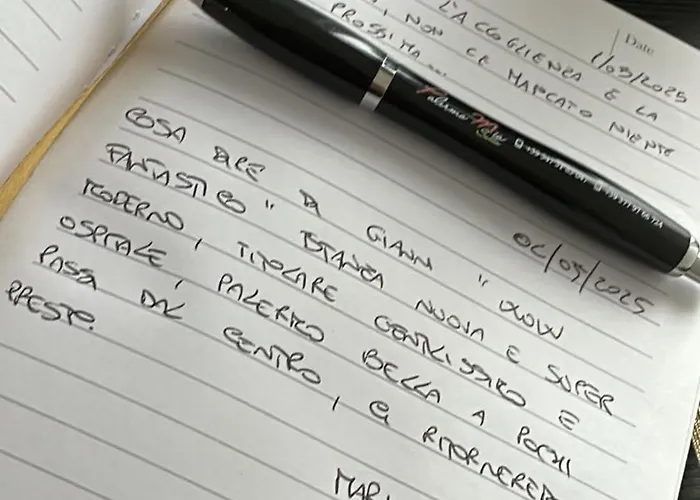 L'ACCOGLIENZA E LA
NON CE MANCATO NIENTE
PROSSIMA...
Date
1/05/2025
Palermo
COSA DIRE DA GIANNI " WOW
FANTASTICO " STANZA NUOVA E SUPER
MODERNO, TITOLARE GENTILISSIMO E
OSPITALE, PALERMO BELLA A POCHI
PASSI DAL CENTRO, CI RITORNEREMO
PRESTO.
/05/2025
MAR